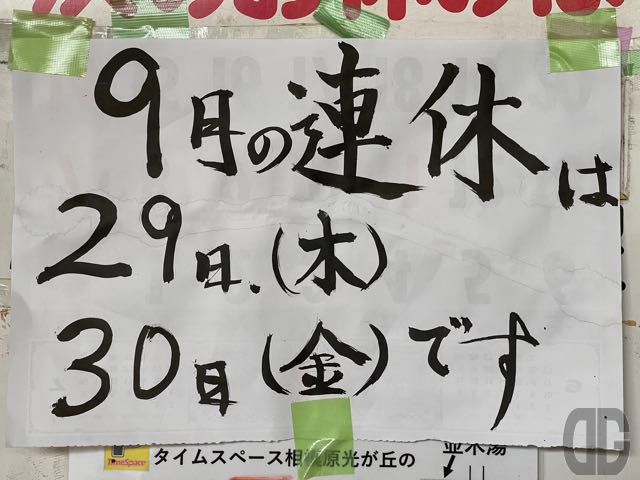 9月の連休は
29日.(木)
30日(金)です
TimeSpace
タイムスペース相模原光が丘の
並木湯